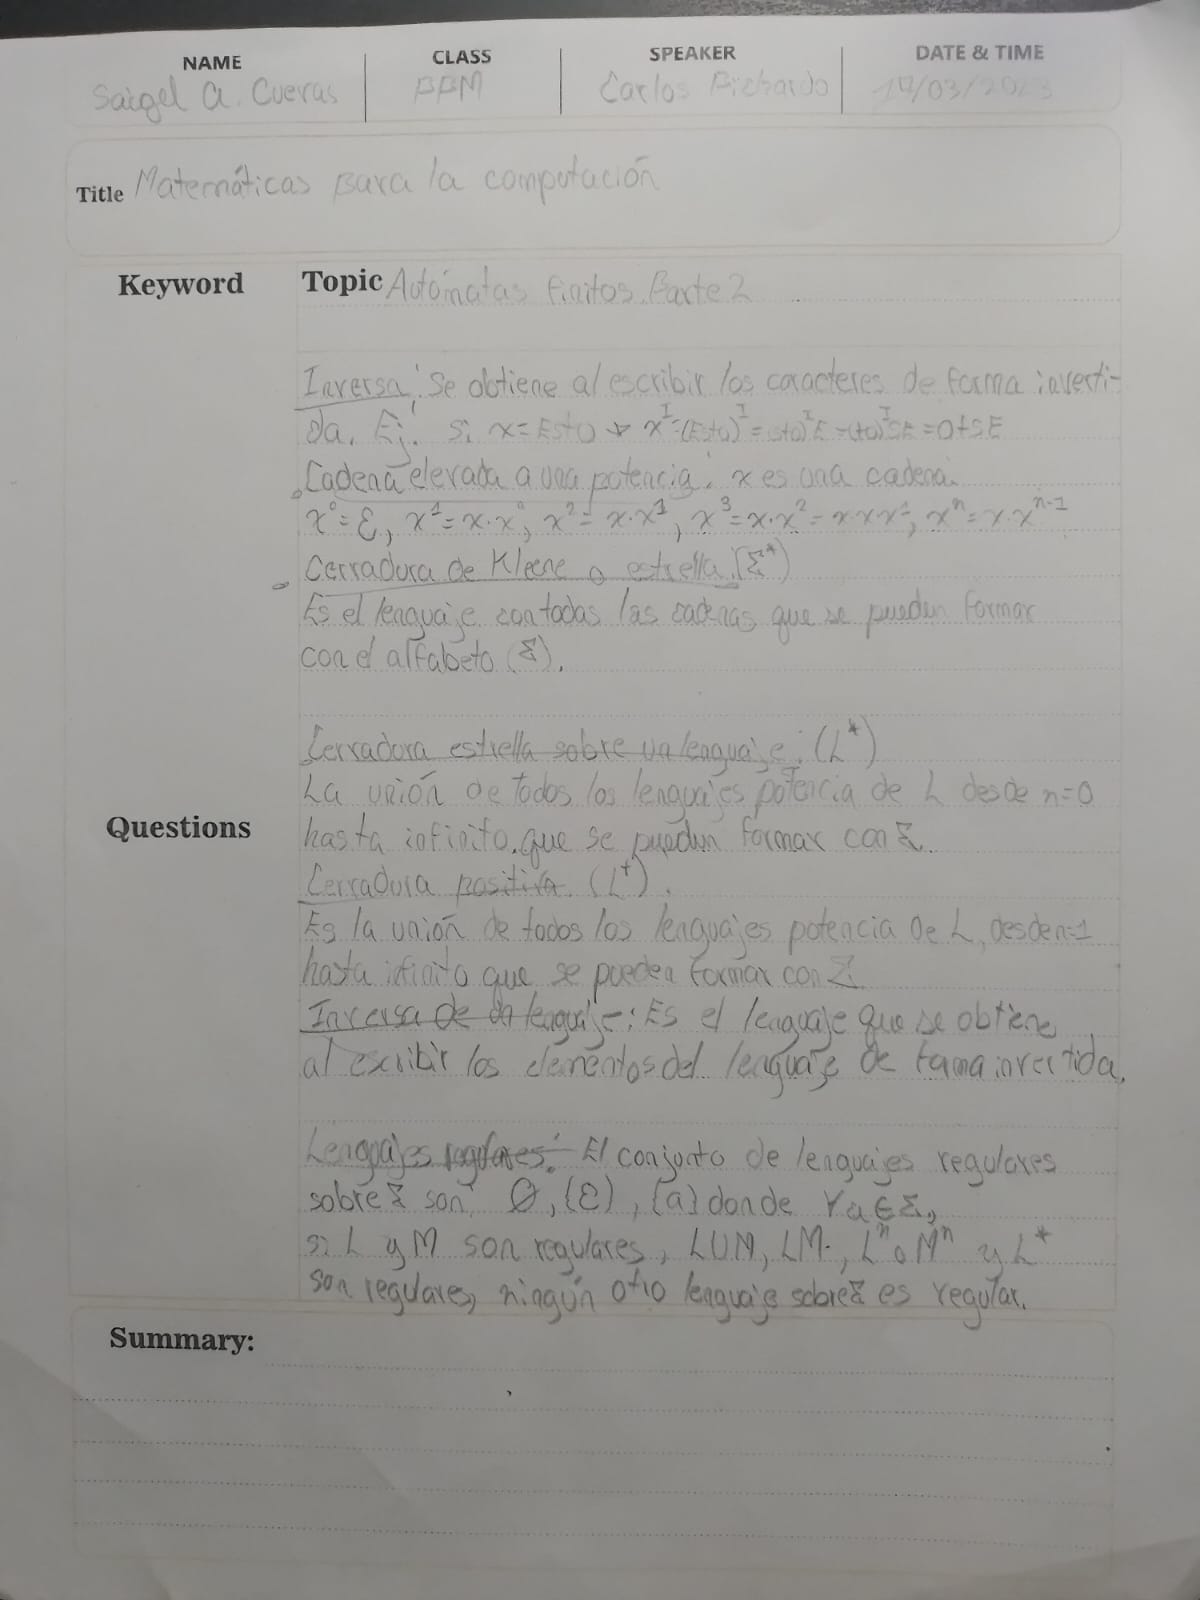 NAME CLASS SPEAKER DATE & TIME
Saigel A. Cuevas Carlos Pichardo /03/2023
Title Matemáticas para la computación
Keyword Topic Autómatas finitos. Parte 2
Inversa: Se obtiene al escribir los caracteres de forma inverti-
da. Ej: si x = Esto → x^I = (Esto)^I = (sto)^I E = (to)^I SE = OtSE
Cadena elevada a una potencia: x es una cadena.
x⁰=ε, x¹=x·x⁰, x²=x·x¹, x³=x·x²=x·x·x¹, xⁿ=x·xⁿ⁻¹
Cerradura de Kleene o estrella (Σ*)
Es el lenguaje con todas las cadenas que se pueden formar
con el alfabeto (Σ).
Cerradura estrella sobre un lenguaje: (L*)
La unión de todos los lenguajes potencia de L desde n=0
Questions hasta infinito, que se pueden formar con Σ.
Cerradura positiva (L⁺).
Es la unión de todos los lenguajes potencia de L, desde n=1
hasta infinito que se pueden formar con Σ.
Inversa de un lenguaje: Es el lenguaje que se obtiene
al escribir los elementos del lenguaje de forma invertida.
Lenguajes regulares: El conjunto de lenguajes regulares
sobre Σ son: Ø, {ε}, {a} donde ∀a∈Σ,
si L y M son regulares, LUM, LM, Lⁿ o Mⁿ y L*
son regulares, ningún otro lenguaje sobre Σ es regular.
Summary: